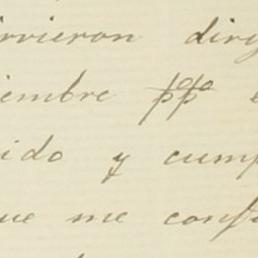 rvieron dirij
iembre ppº
ido y cump
que me conf